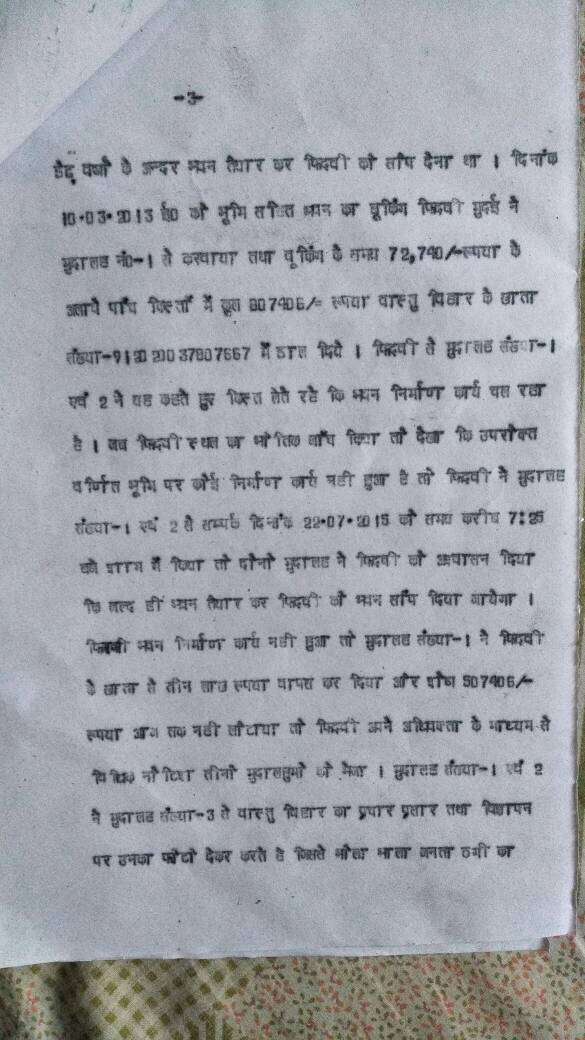 -3-
डेढ़ वर्षो के अन्दर भवन तैयार कर फिदवी को सौंप देना था । दिनांक
10.03.2013 ई0 को भूमि सहित भवन का बूकिंग फिदवी मुदई ने
मुदालह नं0-1 से करवाया तथा बूकिंग के समय 72,740/-रूपया के
अलावे पाँच किस्तों में कुल 807406/= रूपया वास्तु विहार के खाता
संख्या-912020037807667 में डाल दिये । फिदवी से मुदालह संख्या-1
एवं 2 ने यह कहते हुए किस्त लेते रहे कि भवन निर्माण कार्य चल रहा
है । जब फिदवी स्थल का भौतिक जाँच किया तो देखा कि उपरोक्त
वर्णित भूमि पर कोई निर्माण कार्य नही हुआ है तो फिदवी ने मुदालह
संख्या-1 एवं 2 से सम्पर्क दिनांक 22.07.2015 को समय करीब 7:25
बजे शाम में किया तो दोनो मुदालह ने फिदवी को आश्वासन दिया
कि जल्द हीं भवन तैयार कर फिदवी को भवन सौंप दिया जायेगा ।
भवन निर्माण कार्य नही हुआ तो मुदालह संख्या-1 ने फिदवी
के खाता से तीन लाख रूपया वापस कर दिया और शेष 507406/-
रूपया आज तक नही लौटाया तो फिदवी अपने अधिवक्ता के माध्यम से
विधिक नोटिश तीनो मुदालहुमो को भेजा । मुदालह संख्या-1 एवं 2
ने मुदालह संख्या-3 से वास्तु विहार का प्रचार प्रसार तथा विज्ञापन
पर उनका फोटो देकर करते है जिससे भोला भाला जनता ठगी का